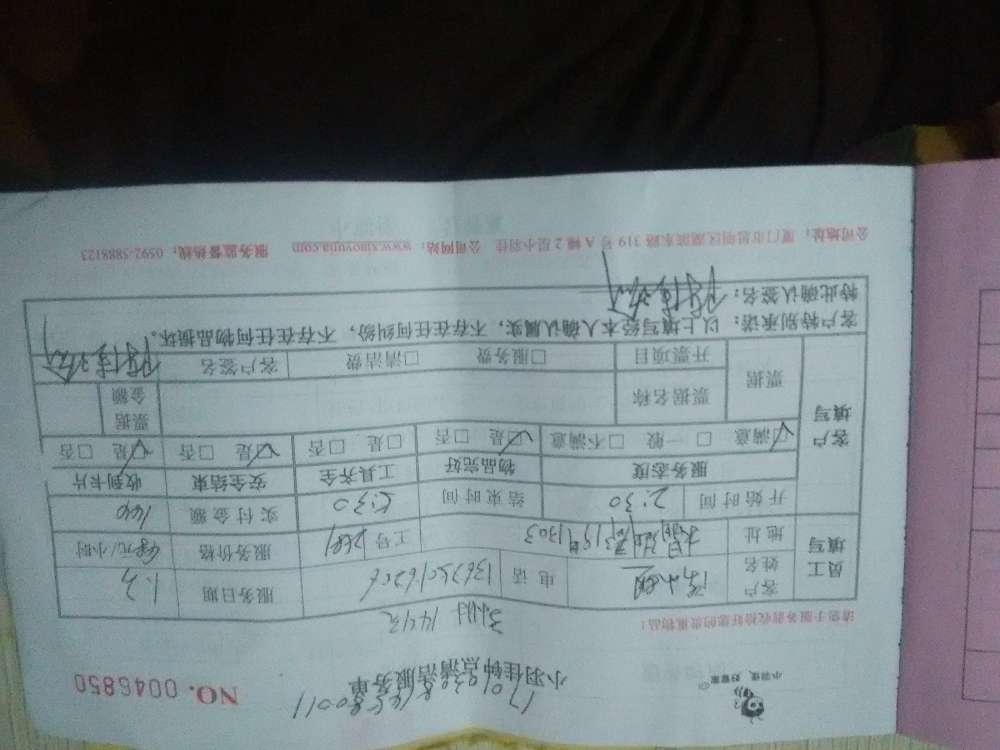 小羽佳 好管家
小羽佳钟点清洁服务单
NO. 0046850
请您于服务前收检好您的贵重物品：
3小时 144元
员工填写
客户姓名
电话
服务日期 1.3
地址
工号
服务价格 48元/小时
开始时间 2:30
结束时间 5:30
实付金额
客户填写
服务态度
物品完好
工具齐全
安全结束
收到卡片
☑满意 □一般 □不满意
☑是 □否
□是 □否
☑是 □否
☑是 □否
票据
票据名称
票据金额
开票项目
□服务费 □清洁费
客户签名
客户特别承诺：以上填写经本人确认属实，不存在任何纠纷，不存在任何物品损坏。
特此确认签名：
公司地址：厦门市思明区湖滨东路 319 号 A 幢 2 层小羽佳 公司网站：www.xiaoyujia.com 服务监督热线：0592-5888123